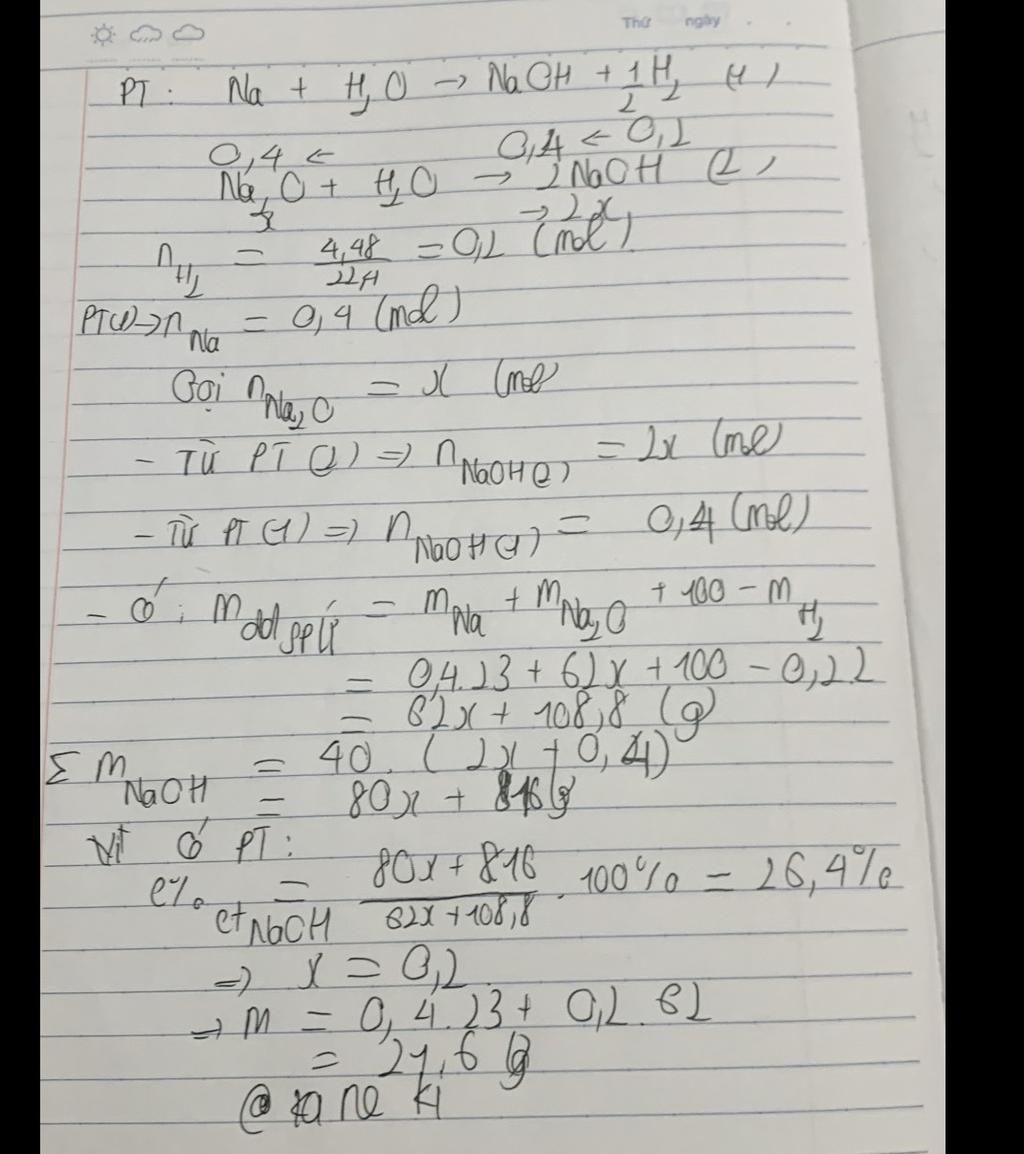 Thứ ngày . .
PT: Na + H₂O → NaOH + 1/2 H₂ (1)
0,4 ← 0,4 ← 0,2
Na₂O + H₂O → 2NaOH (2)
x → 2x
n H₂ = 4,48/22,4 = 0,2 (mol)
PT(1) → n Na = 0,4 (mol)
Gọi n Na₂O = x (mol
- Từ PT (2) => n NaOH(2) = 2x (mol
- Từ PT (1) => n NaOH(1) = 0,4 (mol)
- Có: m dd spứ = m Na + m Na₂O + 100 - m H₂
= 0,4.23 + 62x + 100 - 0,2.2
= 62x + 108,8 (g)
Σ m NaOH = 40. (2x + 0,4)
= 80x + 816 (g)
Vì có PT:
C% ct NaOH = (80x + 816)/(62x + 108,8) . 100% = 26,4%
=> x = 0,2
=> m = 0,4.23 + 0,2.62
= 21,6 (g)